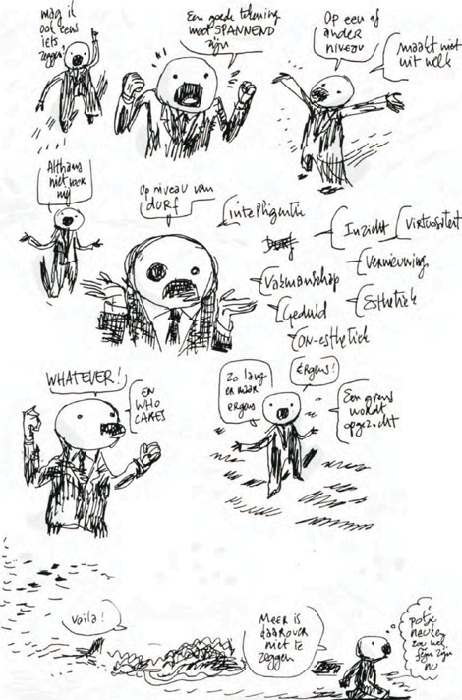 mag ik
ook eens
iets
zeggen?
Een goede tekening
moet SPANNEND
zijn
Op een of
ander
niveau
maakt niet
uit welk
Althans
niet voor
mij
op niveau van
durf
intelligentie
Durf
Vakmanschap
Geduld
On-esthetiek
Inzicht
Virtuositeit
Vernieuwing
Esthetiek
WHATEVER!
EN
WHO
CARES
Zo lang
er maar
ergens
Ergens!
Een grens
wordt
opgezocht
Voila!
Meer is
daarover
niet te
zeggen
zou wel
fijn zijn
nu